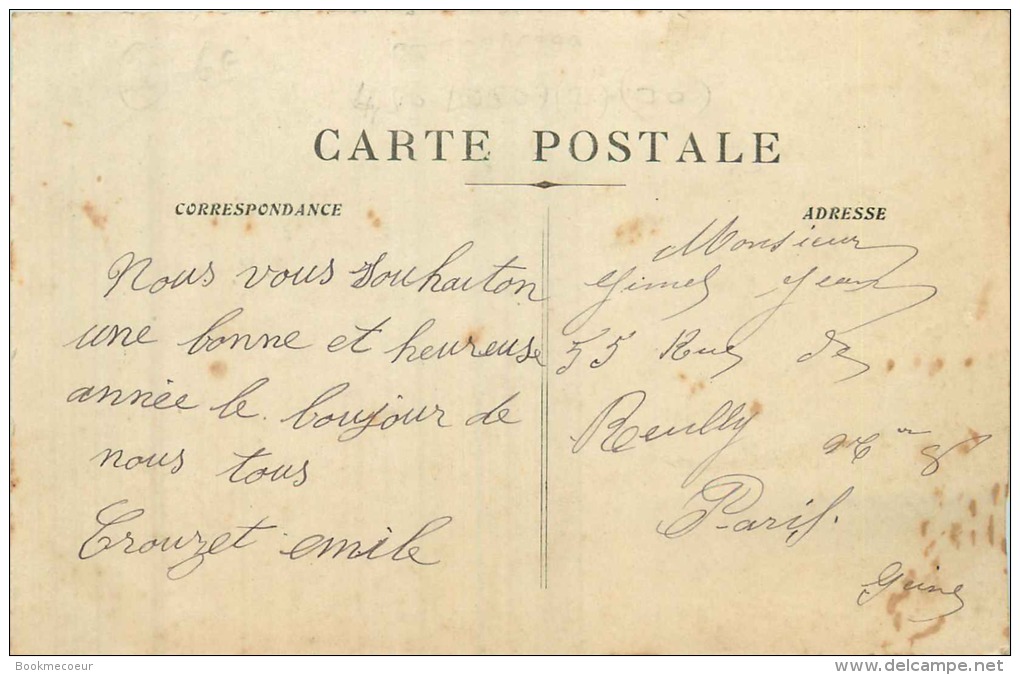 CARTE POSTALE
CORRESPONDANCE
Nous vous souhaiton
une bonne et heureuse
année le boujour de
nous tous
Crouzet emile
ADRESSE
Monsieur
Gimel Jean
55 Rue de
Reuilly
Paris
Seine
Bookmecoeur
www.delcampe.net